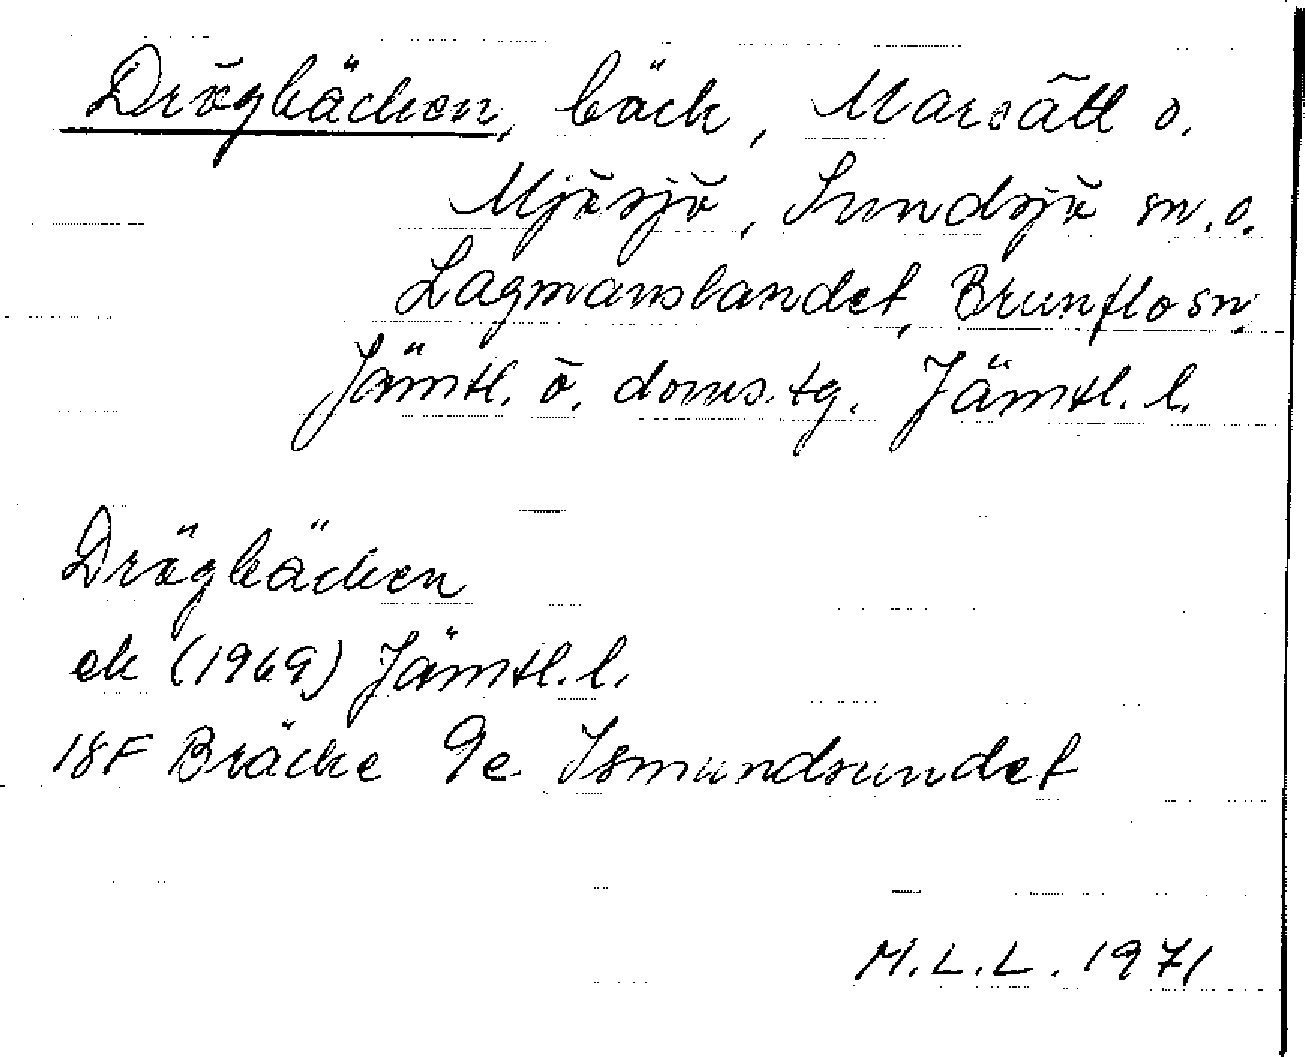 Drögbäcken, bäck, Marsätt o.
Mjösjö, Sundsjö sn. o.
Lagmanslandet, Brunflo sn.
Jämtl. ö. doms. tg. Jämtl. l.
Drögbäcken
ek (1969) Jämtl. l.
18F Bräcke 9e Ismundsundet
M.L.L. 1971